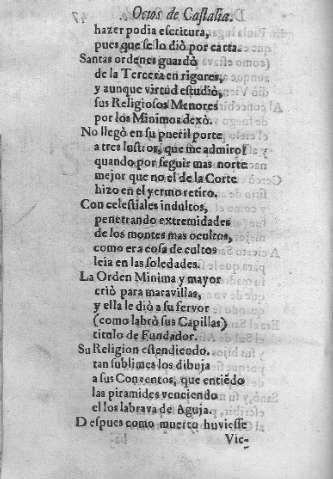 Ocios de Castalia.
hazer podia escritura,
pues que se lo diò por carta.
Santas ordenes guardò
de la Tercera en rigores,
y aunque virtud estudiò,
sus Religiosos Menores
por los Minimos dexò.
No llegò en su pueril porte
a tres lustros, que me admiro!
quando por seguir mas norte
mejor que no el de la Corte
hizo en el yermo retiro.
Con celestiales indultos,
penetrando extremidades
de los montes mas ocultos,
como era cosa de cultos
leia en las soledades.
La Orden Minima y mayor
criò para maravillas,
y ella le diò a su fervor
(como labrò sus Capillas)
titulo de Fundador.
Su Religion estendiendo,
tan sublimes los dibuja
a sus Conventos, que entiẽdo
las piramides venciendo
el los labrava de Aguja.
Despues como muerto huviesse
Vic-